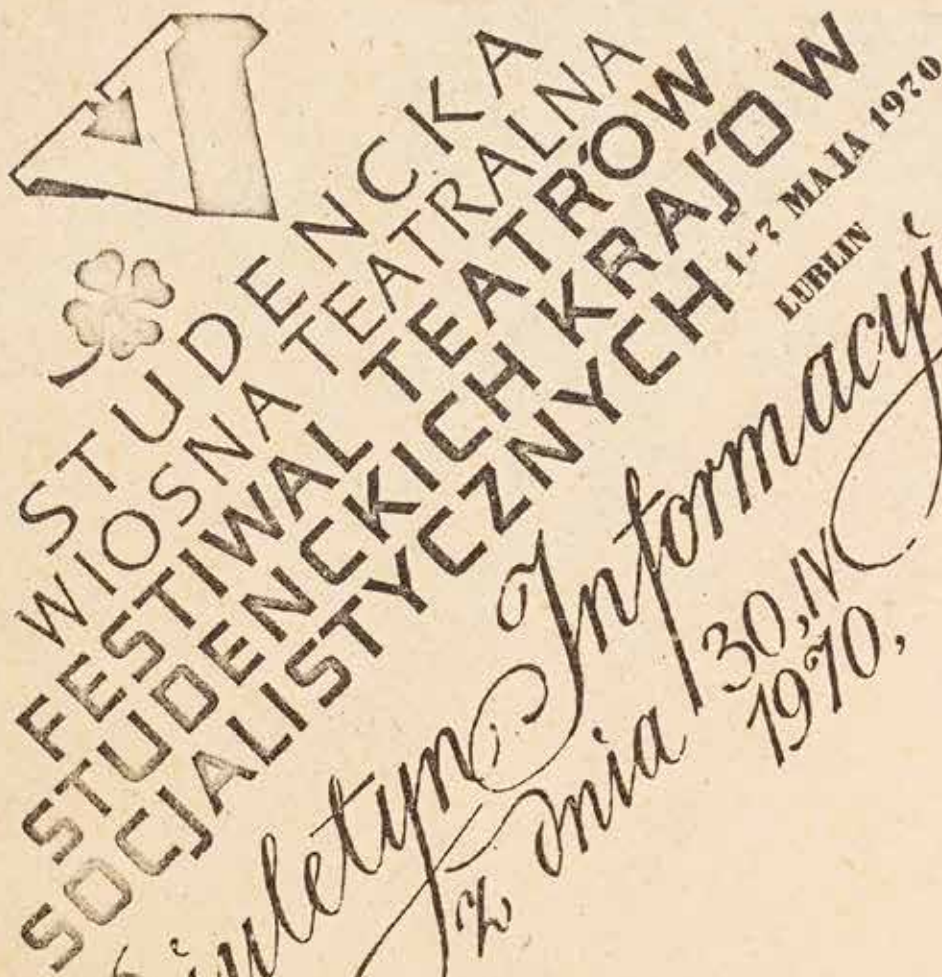 VI
STUDENCKA
WIOSNA TEATRALNA
FESTIWAL TEATRÓW
STUDENCKICH KRAJÓW
SOCJALISTYCZNYCH
1-7 MAJA 1970
LUBLIN
Biuletyn Informacyj
z dnia 30,IV
1970,